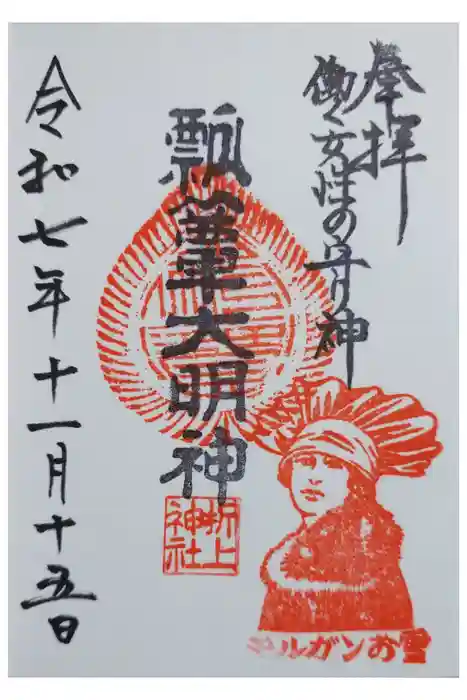 奉拝
働く女性の守り神
瓢箪大明神
折上
神社
モルガンお雪
令和七年十一月十五日